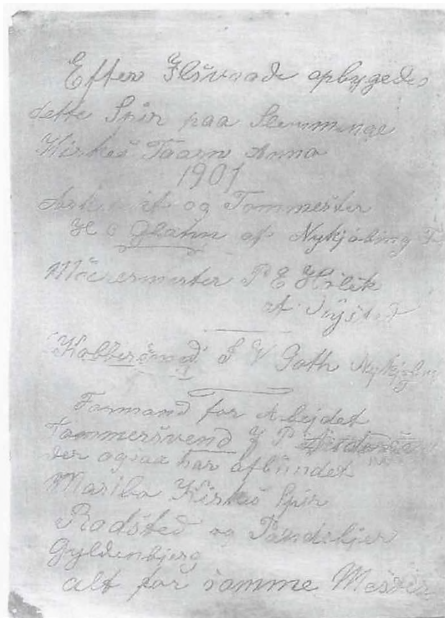 Efter Ildsvaade opbygedes
dette Spir paa Slemminge
Kirkes Taarn Anno
1901
Arkitekt og Tømmester
H C Glahn af Nykjøbing F
Mu ermester P E Holck
af Nysted
Kobbersmed J V Goth Nykjøb
Formand for Arbejdet
Tømmersvend J P
der ogsaa har afbundet
Maribo Kirkes Spir
Radsted og
Gyldenbjerg
alt for samme Mester